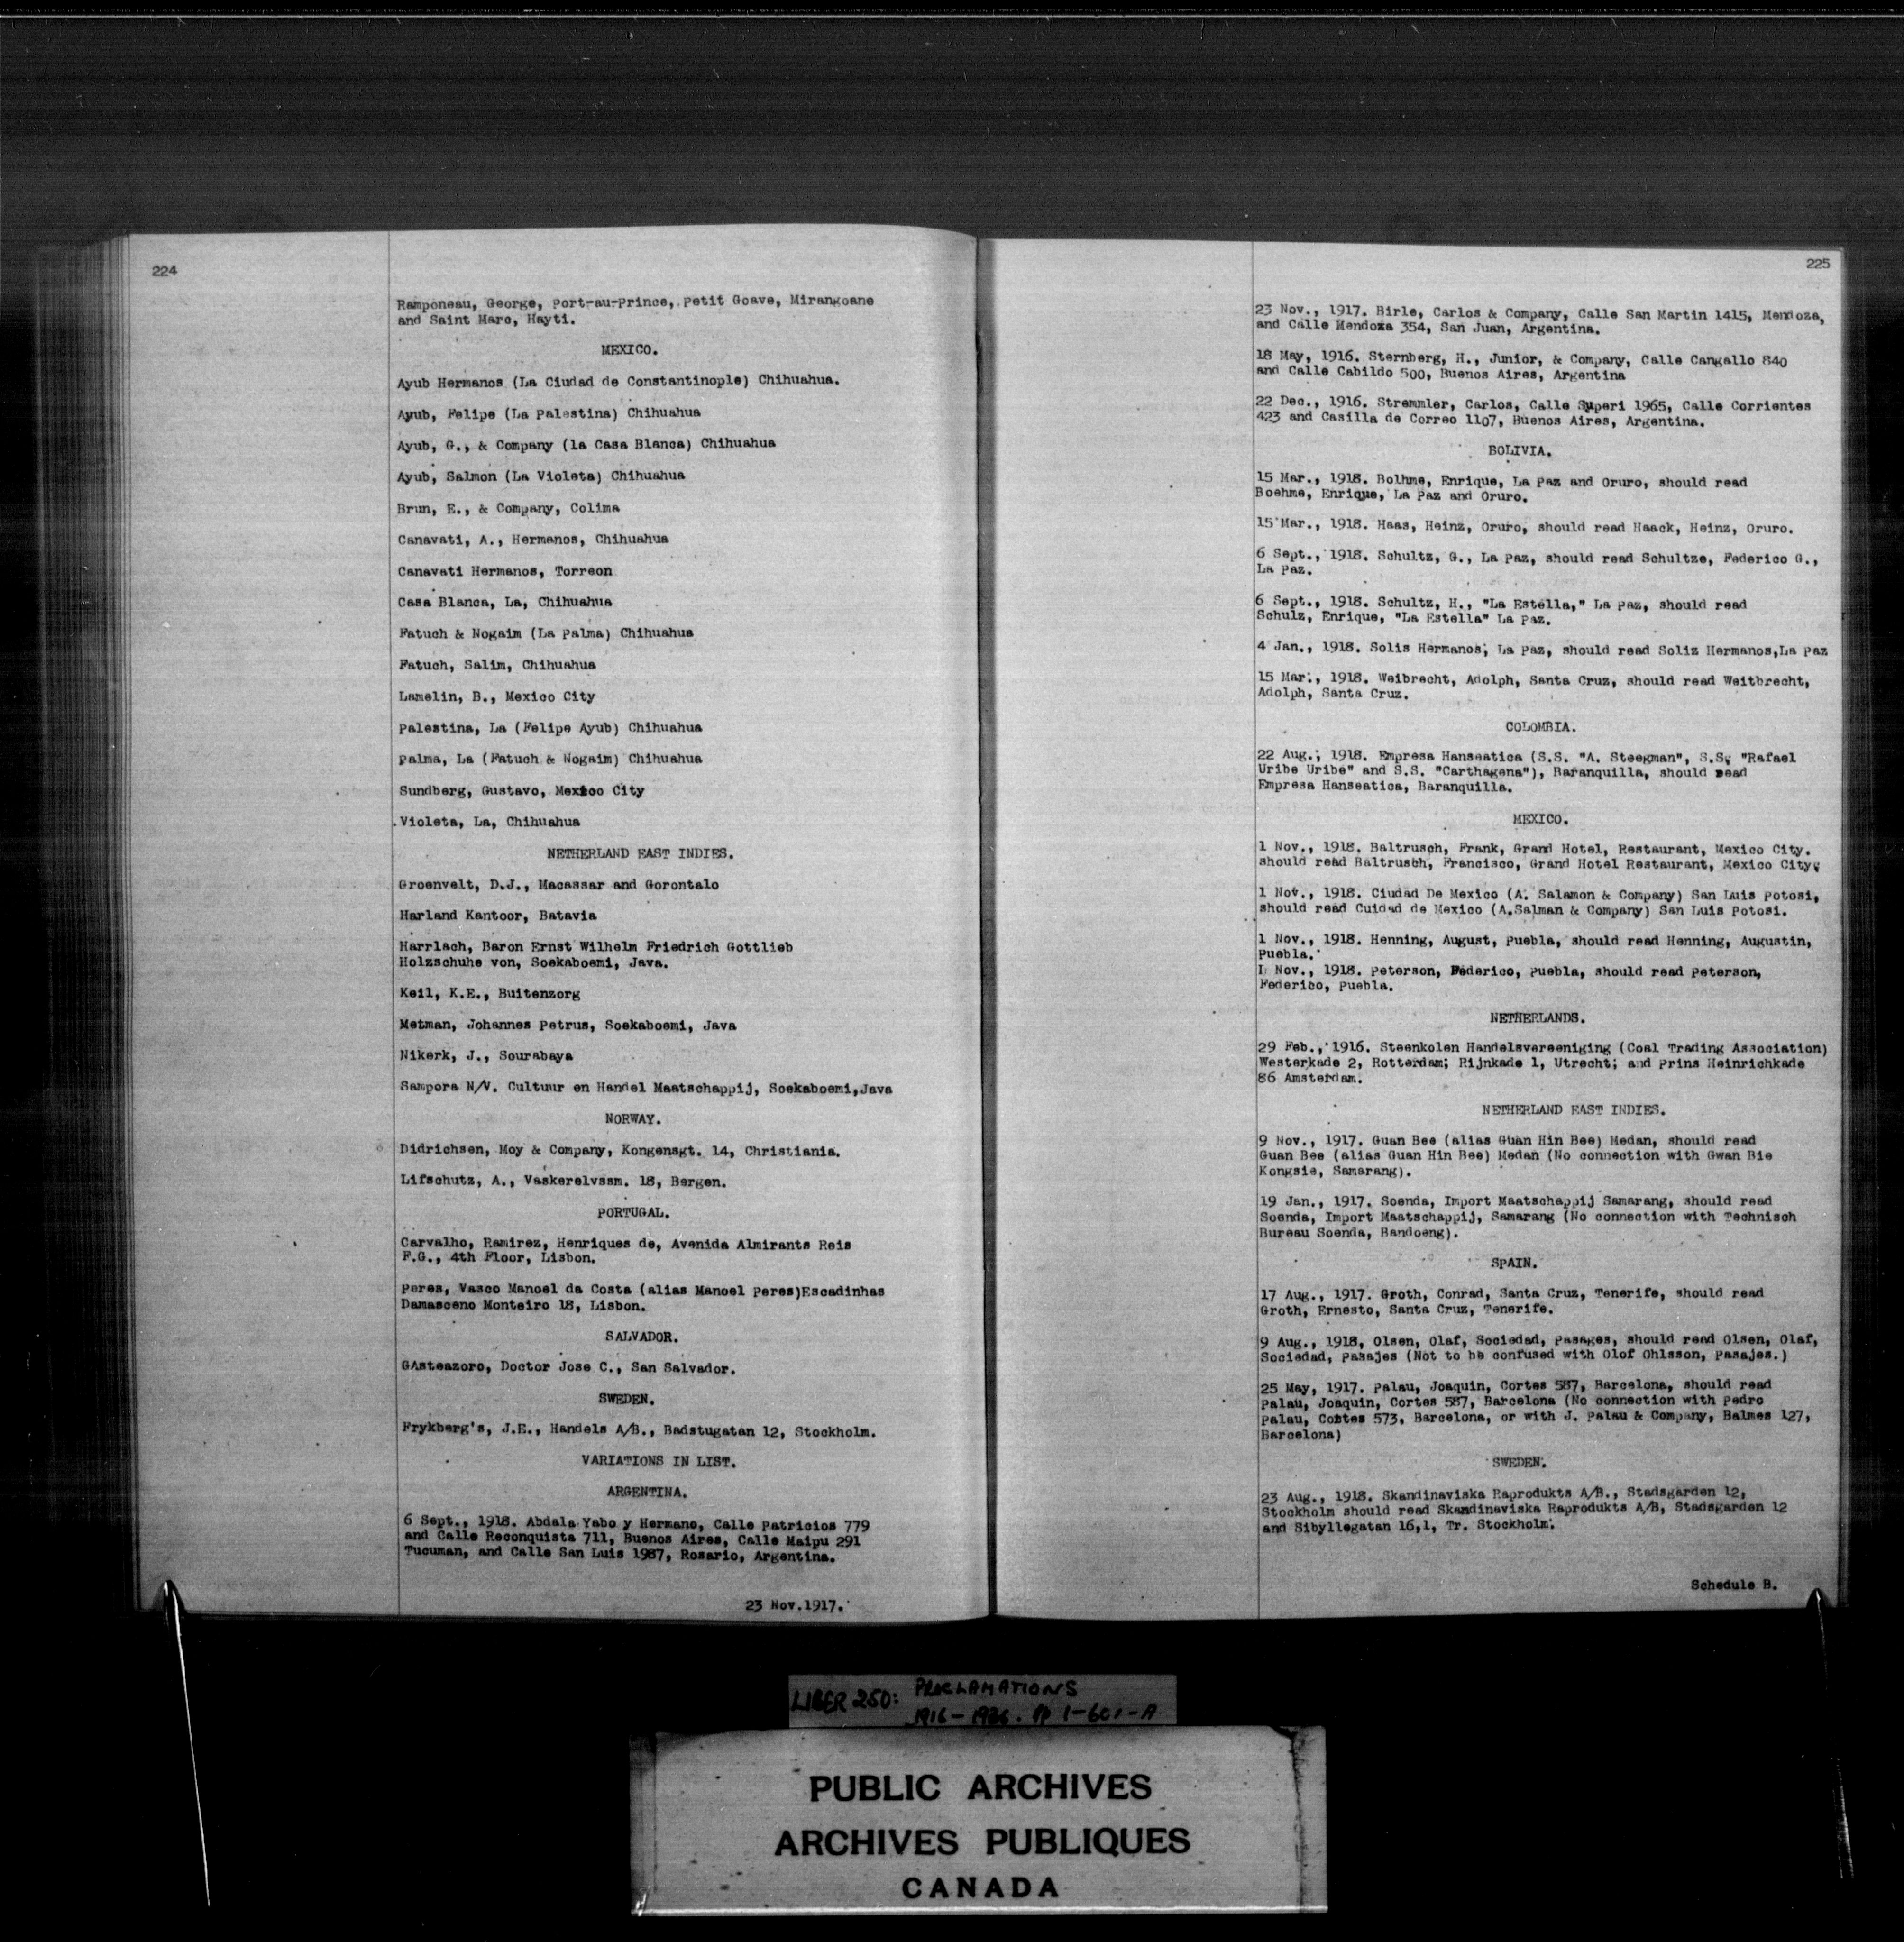 224
Ramponeau, George, Port-au-Prince, Petit Goave, Mirangoane
and Saint Marc, Hayti.
MEXICO.
Ayub Hermanos (La Ciudad de Constantinople) Chihuahua.
Ayub, Felipe (La Palestina) Chihuahua
Ayub, G., & Company (la Casa Blanca) Chihuahua
Ayub, Salmon (La Violeta) Chihuahua
Brun, E., & Company, Colima
Canavati, A., Hermanos, Chihuahua
Canavati Hermanos, Torreon
Casa Blanca, La, Chihuahua
Fatuch & Nogaim (La Palma) Chihuahua
Fatuch, Salim, Chihuahua
Lamelin, B., Mexico City
Palestina, La (Felipe Ayub) Chihuahua
Palma, La (Fatuch & Nogaim) Chihuahua
Sundberg, Gustavo, Mexico City
Violeta, La, Chihuahua
NETHERLAND EAST INDIES.
Groenvelt, D.J., Macassar and Gorontalo
Harland Kantoor, Batavia
Harrlach, Baron Ernst Wilhelm Friedrich Gottlieb
Holzschuhe von, Soekaboemi, Java.
Keil, K.E., Buitenzorg
Metman, Johannes Petrus, Soekaboemi, Java
Nikerk, J., Sourabaya
Sampora N/V. Cultuur en Handel Maatschappij, Soekaboemi,Java
NORWAY.
Didrichsen, Moy & Company, Kongensgt. 14, Christiania.
Lifschutz, A., Vaskerelvssm. 18, Bergen.
PORTUGAL.
Carvalho, Ramirez, Henriques de, Avenida Almirants Reis
F.G., 4th Floor, Lisbon.
Peres, Vasco Manoel da Costa (alias Manoel Peres)Escadinhas
Damasceno Monteiro 18, Lisbon.
SALVADOR.
GAsteazoro, Doctor Jose C., San Salvador.
SWEDEN.
Frykberg's, J.E., Handels A/B., Badstugatan 12, Stockholm.
VARIATIONS IN LIST.
ARGENTINA.
6 Sept., 1918. Abdala Yabo y Hermano, Calle Patricios 779
and Calle Reconquista 711, Buenos Aires, Calle Maipu 291
Tucuman, and Calle San Luis 1987, Rosario, Argentina.
23 Nov.1917.
225
23 Nov., 1917. Birle, Carlos & Company, Calle San Martin 1415, Mendoza,
and Calle Mendoza 354, San Juan, Argentina.
18 May, 1916. Sternberg, H., Junior, & Company, Calle Cangallo 840
and Calle Cabildo 500, Buenos Aires, Argentina
22 Dec., 1916. Stremmler, Carlos, Calle Superi 1965, Calle Corrientes
423 and Casilla de Correo 1107, Buenos Aires, Argentina.
BOLIVIA.
15 Mar., 1918. Bolhme, Enrique, La Paz and Oruro, should read
Boehme, Enrique, La Paz and Oruro.
15 Mar., 1918. Haas, Heinz, Oruro, should read Haack, Heinz, Oruro.
6 Sept., 1918. Schultz, G., La Paz, should read Schultze, Federico G.,
La Paz.
6 Sept., 1918. Schultz, H., "La Estella," La Paz, should read
Schulz, Enrique, "La Estella" La Paz.
4 Jan., 1918. Solis Hermanos, La Paz, should read Soliz Hermanos,La Paz
15 Mar., 1918. Weibrecht, Adolph, Santa Cruz, should read Weitbrecht,
Adolph, Santa Cruz.
COLOMBIA.
22 Aug., 1918. Empresa Hanseatica (S.S. "A. Steegman", S.S. "Rafael
Uribe Uribe" and S.S. "Carthagena"), Baranquilla, should read
Empresa Hanseatica, Baranquilla.
MEXICO.
1 Nov., 1918. Baltrusch, Frank, Grand Hotel, Restaurant, Mexico City.
should read Baltrusch, Francisco, Grand Hotel Restaurant, Mexico City.
1 Nov., 1918. Ciudad De Mexico (A. Salamon & Company) San Luis Potosi,
should read Cuidad de Mexico (A.Salman & Company) San Luis Potosi.
1 Nov., 1918. Henning, August, Puebla, should read Henning, Augustin,
Puebla.
1 Nov., 1918. Peterson, Federico, Puebla, should read Peterson,
Federico, Puebla.
NETHERLANDS.
29 Feb., 1916. Steenkolen Handelsvereeniging (Coal Trading Association)
Westerkade 2, Rotterdam; Rijnkade 1, Utrecht; and Prins Heinrichkade
86 Amsterdam.
NETHERLAND EAST INDIES.
9 Nov., 1917. Guan Bee (alias Guan Hin Bee) Medan, should read
Guan Bee (alias Guan Hin Bee) Medan (No connection with Gwan Bie
Kongsie, Samarang).
19 Jan., 1917. Soenda, Import Maatschappij Samarang, should read
Soenda, Import Maatschappij, Samarang (No connection with Technisch
Bureau Soenda, Bandoeng).
SPAIN.
17 Aug., 1917. Groth, Conrad, Santa Cruz, Tenerife, should read
Groth, Ernesto, Santa Cruz, Tenerife.
9 Aug., 1918, Olsen, Olaf, Sociedad, Pasages, should read Olsen, Olaf,
Sociedad, Pasajes (Not to be confused with Olof Ohlsson, Pasajes.)
25 May, 1917. Palau, Joaquin, Cortes 587, Barcelona, should read
Palau, Joaquin, Cortes 587, Barcelona (No connection with Pedro
Palau, Cortes 573, Barcelona, or with J. Palau & Company, Balmes 127,
Barcelona)
SWEDEN.
23 Aug., 1918. Skandinaviska Raprodukts A/B., Stadsgarden 12,
Stockholm should read Skandinaviska Raprodukts A/B, Stadsgarden 12
and Sibyllegatan 16,1, Tr. Stockholm.
Schedule B.
LIBER 250: PROCLAMATIONS
1916-1926. pp 1-601-A
PUBLIC ARCHIVES
ARCHIVES PUBLIQUES
CANADA